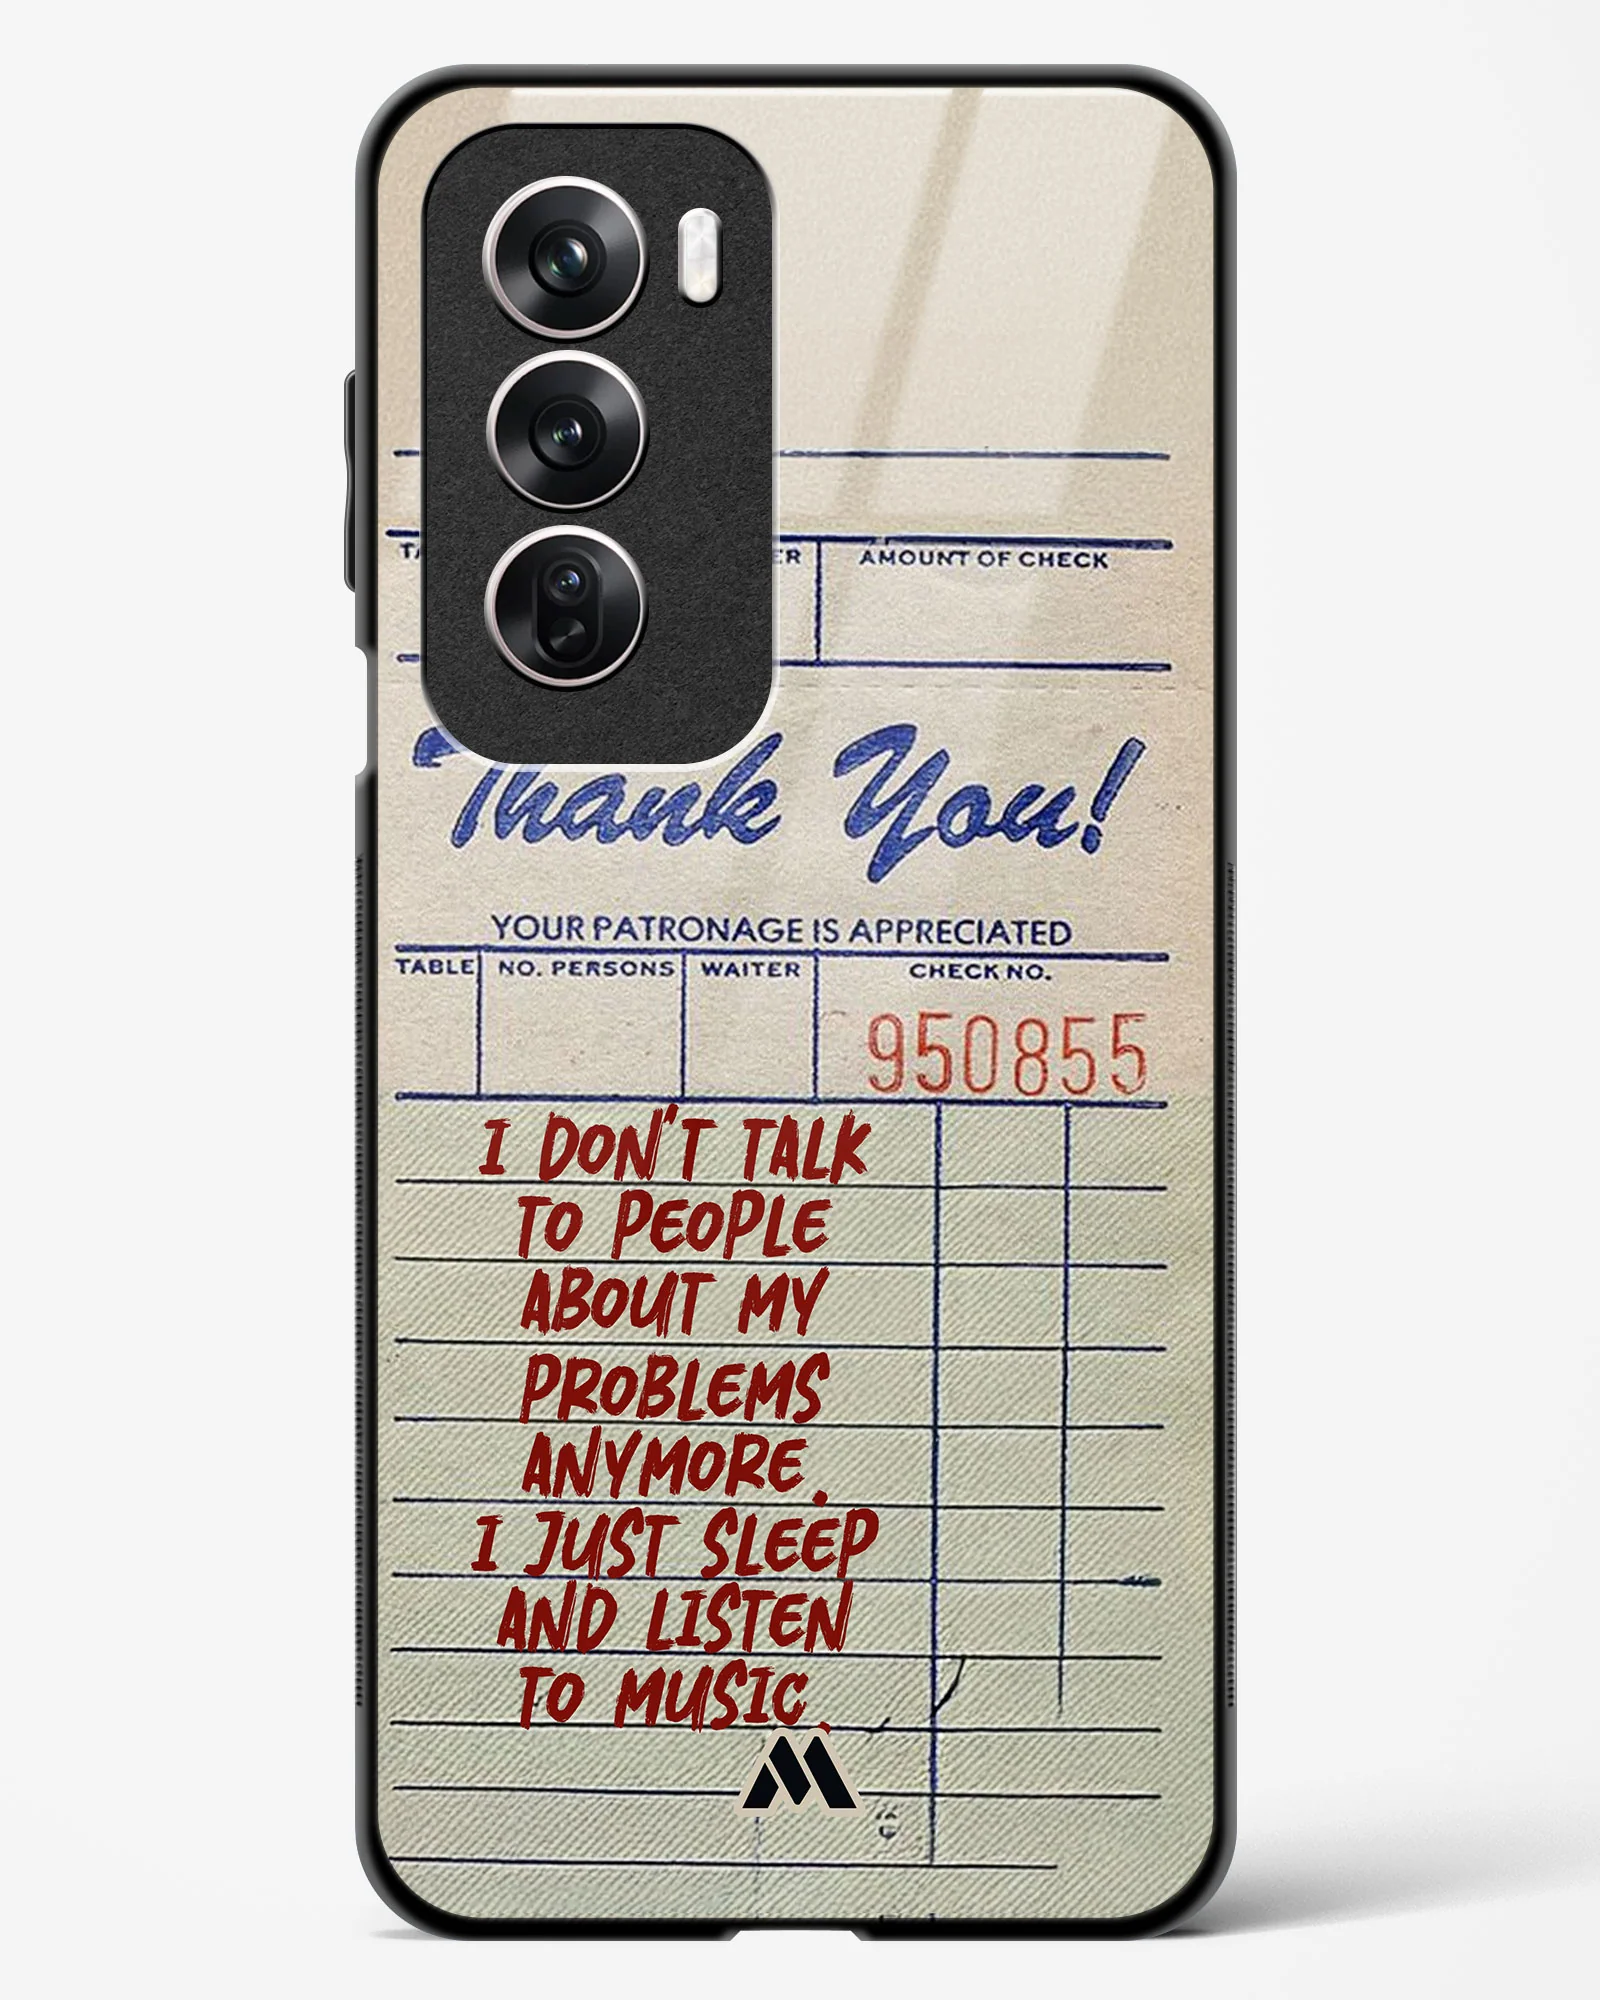 AMOUNT OF CHECK
Thank You!
YOUR PATRONAGE IS APPRECIATED
TABLE NO. PERSONS WAITER CHECK NO.
950855
I DON'T TALK
TO PEOPLE
ABOUT MY
PROBLEMS
ANYMORE.
I JUST SLEEP
AND LISTEN
TO MUSIC.